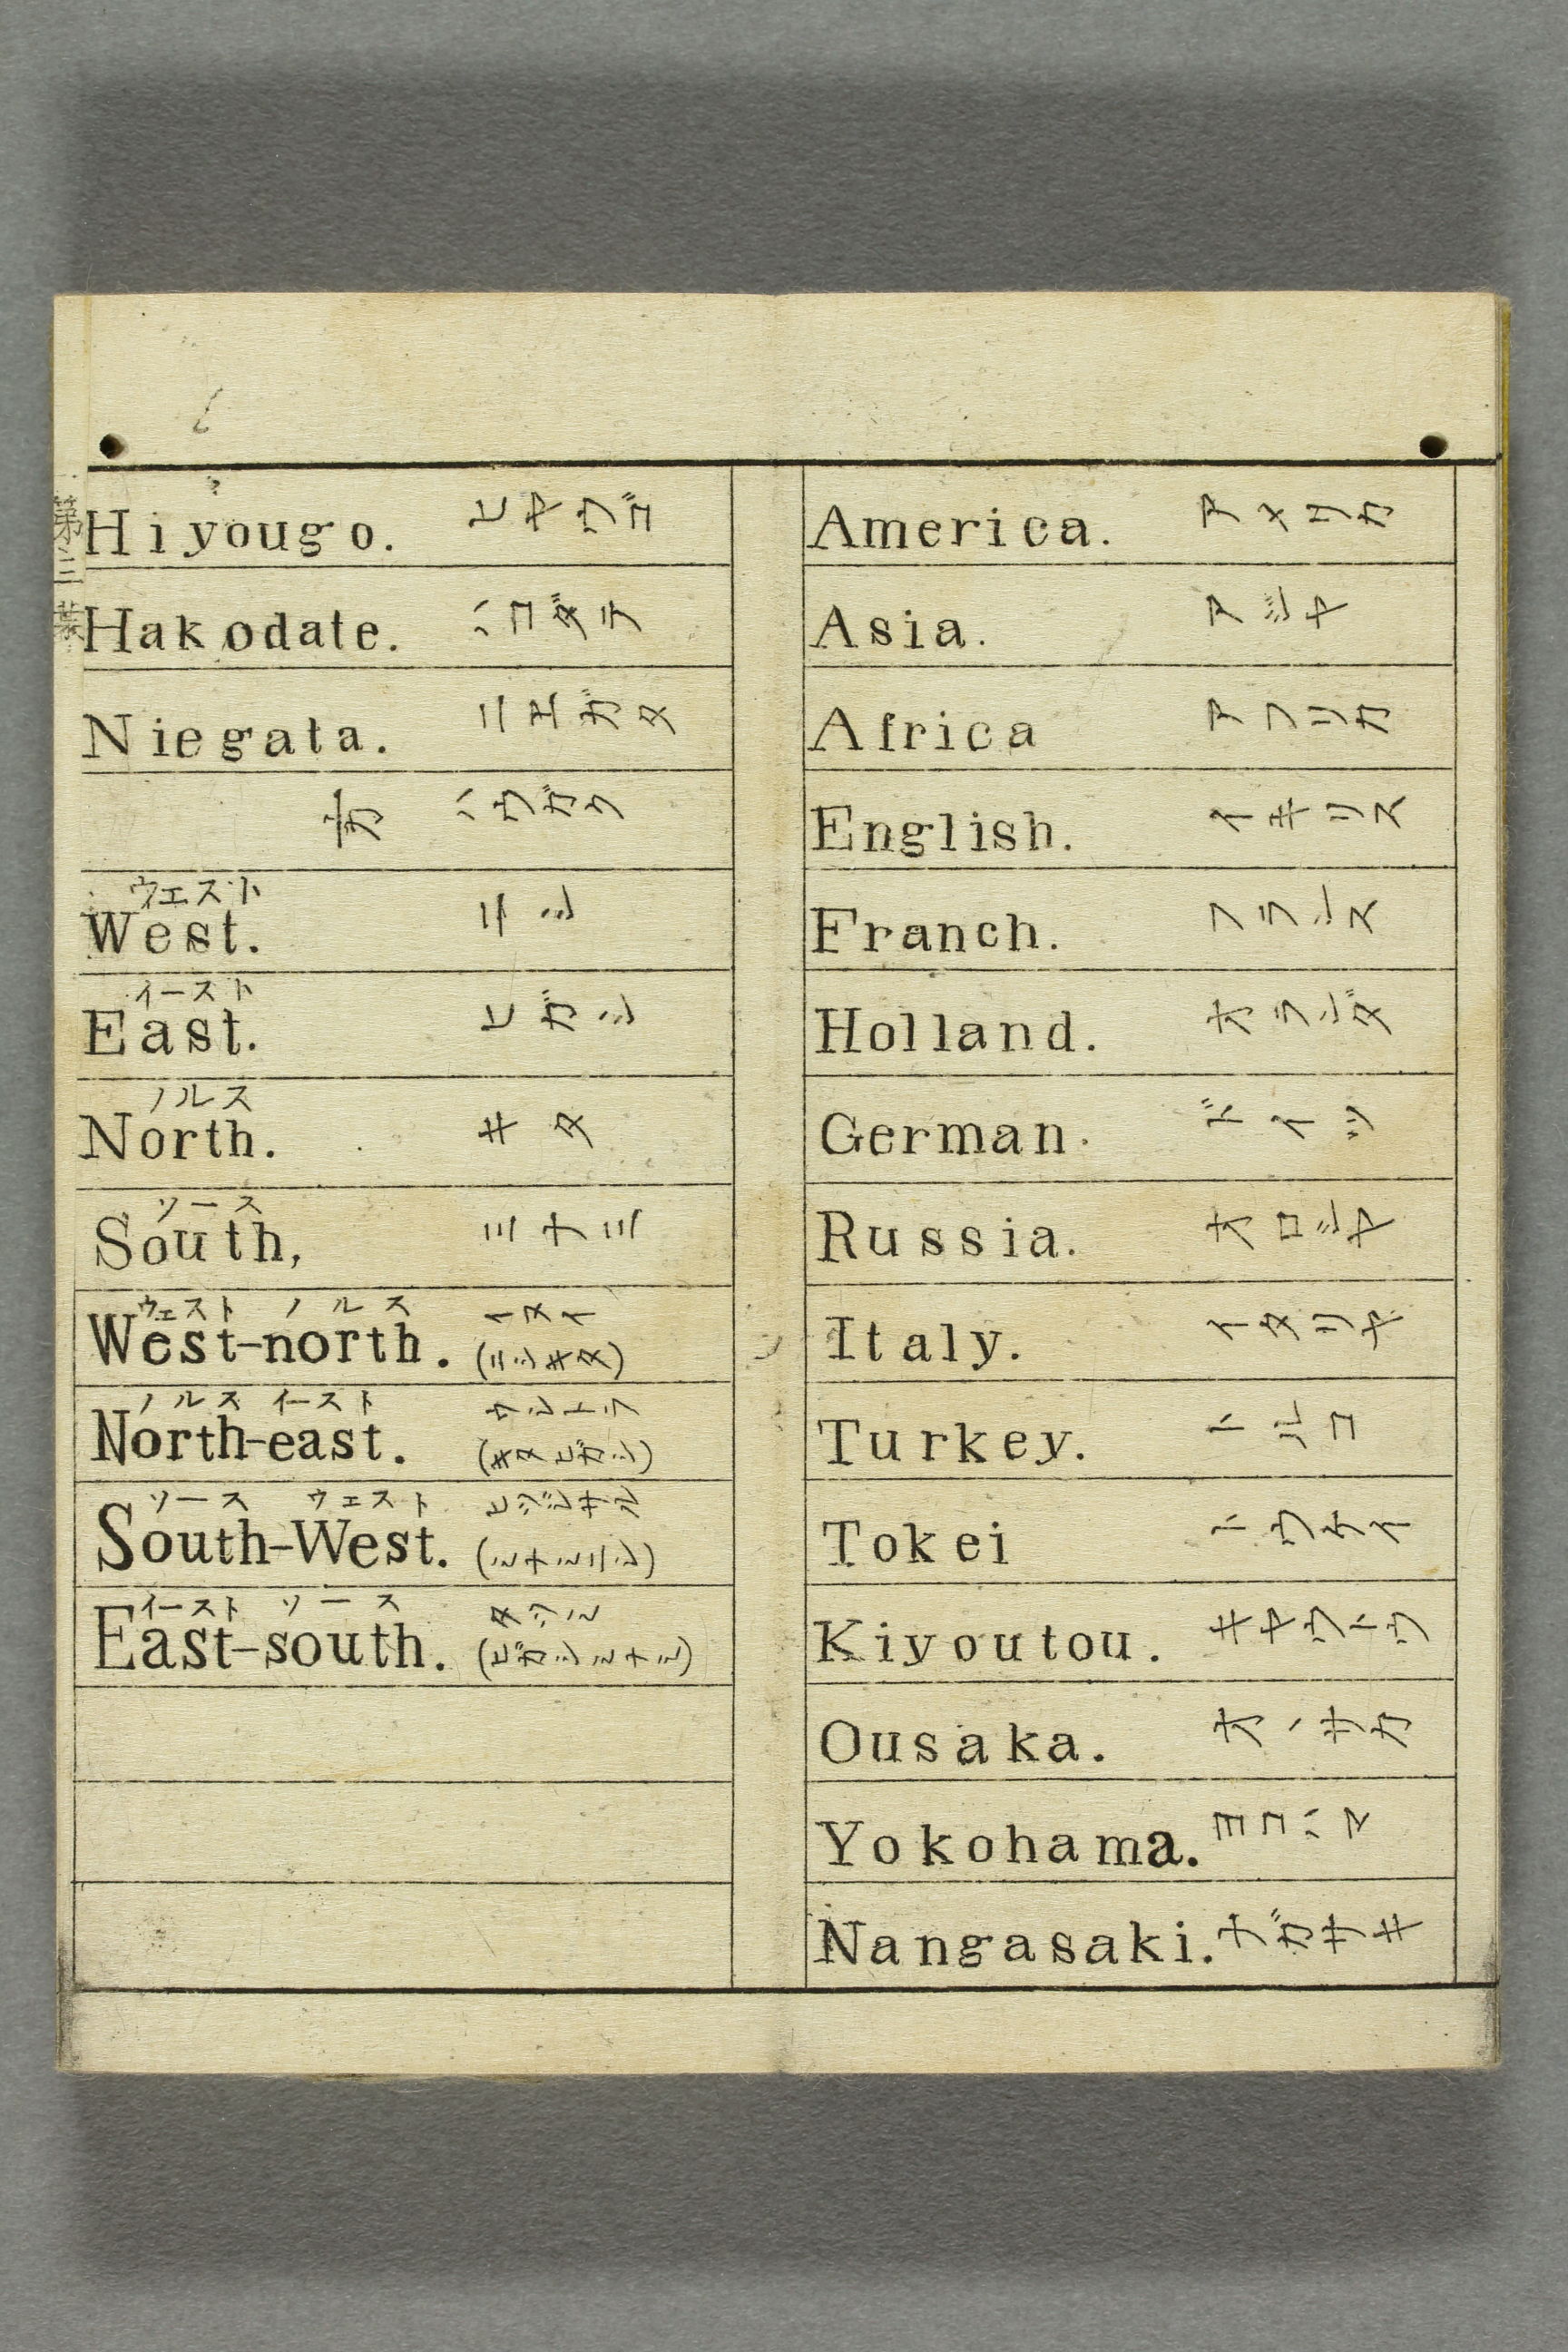 America. アメリカ
Asia. アジヤ
Africa アフリカ
English. イキリス
Franch. フランス
Holland. オランダ
German. ドイツ
Russia. オロシヤ
Italy. イタリヤ
Turkey. トルコ
Tokei トウケイ
Kiyoutou. キヤウトウ
Ousaka. オーサカ
Yokohama. ヨコハマ
Nangasaki. ナガサキ
Hiyougo. ヒヤウゴ
Hakodate. ハコダテ
Niegata. ニエガタ
ハウガク
ウエスト
West. ニシ
イースト
East. ヒガシ
ノルス
North. キタ
ソース
South, ミナミ
ウェスト ノルス
West-north. イヌイ
(ニシキタ)
ノルス イースト
North-east. ウシトラ
(キタヒガシ)
ソース ウエスト
South-West. ヒツジサル
(ミナミニシ)
イースト ソース
East-south. タツミ
(ヒガシミナミ)
第三葉